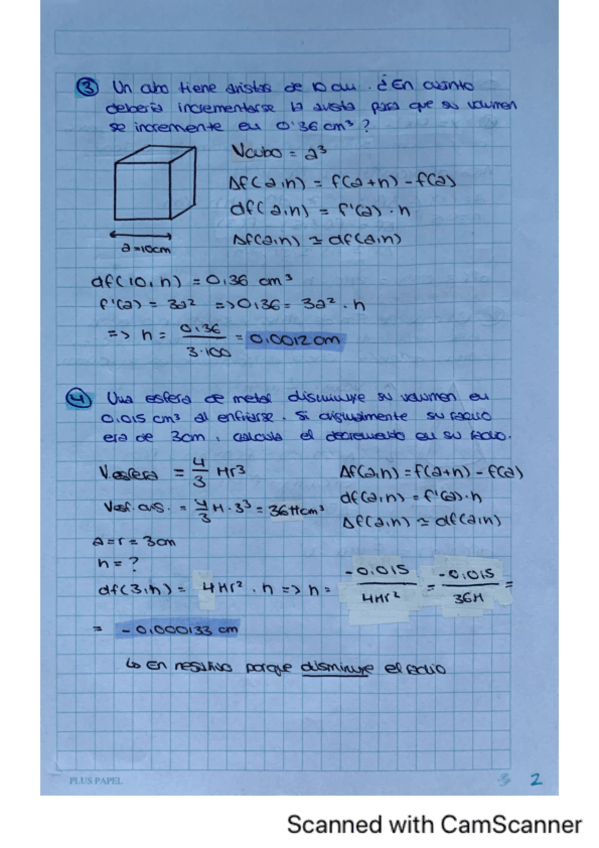 3 Un cubo tiene aristas de 10 cm. ¿En cuánto
debería incrementarse la arista para que su volumen
se incremente en 0'36 cm³?
Vcubo = a³
Δf(a,h) = f(a+h) - f(a)
df(a,h) = f'(a) · h
Δf(a,h) ≃ df(a,h)
a=10cm
df(10,h) = 0,36 cm³
f'(a) = 3a² => 0,36 = 3a² · h
=> h = 0,36 / 3·100 = 0,0012 cm
4 Una esfera de metal disminuye su volumen en
0,015 cm³ al enfriarse. Si originalmente su radio
era de 3cm, calcula el decremento en su radio.
Vesfera = 4/3 πr³
Δf(a,h) = f(a+h) - f(a)
df(a,h) = f'(a) · h
Vesf. = 4/3 π · 3³ = 36π cm³
Δf(a,h) ≃ df(a,h)
a = r = 3cm
h = ?
df(3,h) = 4πr² · h => h = -0,015 / 4πr² = -0,015 / 36π =
= -0,000133 cm
↳ En negativo porque disminuye el radio
PLUS PAPEL
2
Scanned with CamScanner